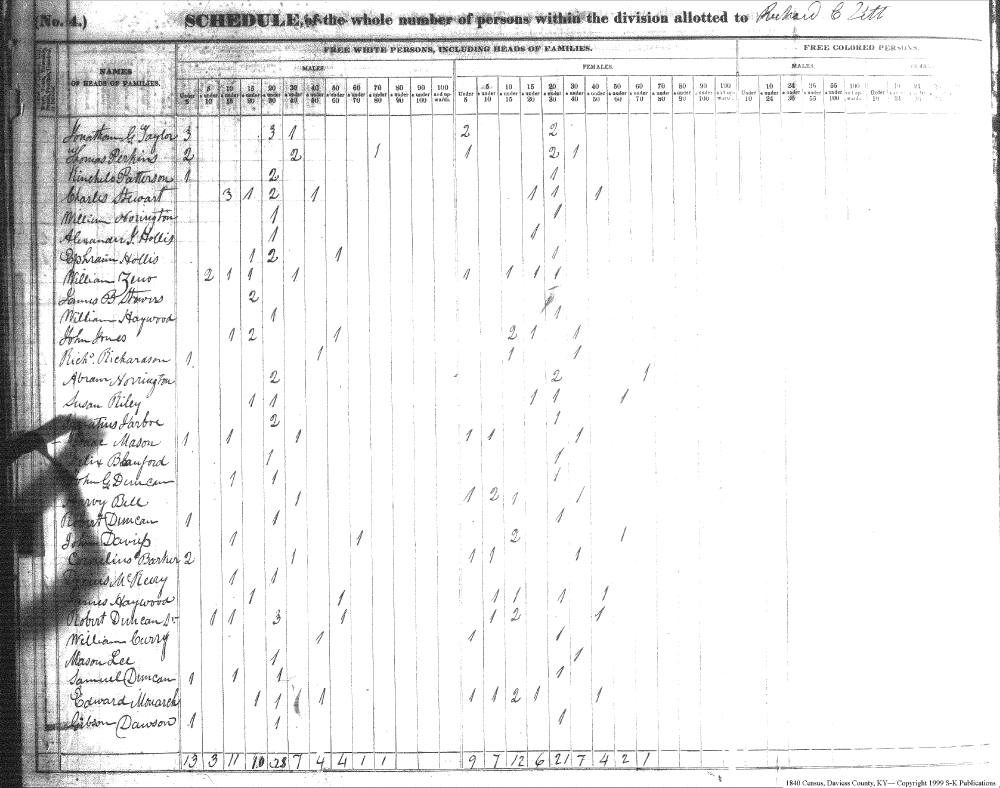 (No. 4.) SCHEDULE, of the whole number of persons within the division allotted to Richard C
FREE WHITE PERSONS, INCLUDING HEADS OF FAMILIES. FREE COLORED PERSONS.
NAMES OF HEADS OF FAMILIES. MALES. FEMALES. MALES.
Under 5 5 & under 10 10 & under 15 15 & under 20 20 & under 30 30 & under 40 40 & under 50 50 & under 60 60 & under 70 70 & under 80 80 & under 90 90 & under 100 100 and upwards. Under 5 5 & under 10 10 & under 15 15 & under 20 20 & under 30 30 & under 40 40 & under 50 50 & under 60 60 & under 70 70 & under 80 80 & under 90 90 & under 100 100 and upwards. Under 10 10 & under 24 24 & under 36 36 & under 55 55 & under 100
Jonathan G Taylor 3 3 1 2 2
Thomas Perkins 2 2 1 1 2 1
Kinchelo Patterson 1 2 1
Charles Stewart 3 1 2 1 1 1 1
William Norrington 1 1
Alexander J. Hollis 1 1
Ephraim Hollis 1 2 1 1
William Zeno 2 1 1 1 1 1 1 1
James B 2
William Haywood 1 1
John Jones 1 2 1 2 1 1
Richd. Richardson 1 1 1 1
Abram Norrington 2 2 1
Susan Riley 1 1 1 1 1
Jarboe 2 1
Mason 1 1 1 1 1 1
Blanford 1 1
John G Duncan 1 1 1
Harvy Bell 1 1 2 1 1
Robert Duncan 1 1 1
John Daviess 1 1 2 1
Cornelius Barker 2 1 1 1 1
1 1
James Haywood 1 1 1 1 1 1
Robert Duncan Sr 1 1 3 1 1 2 1
William Curry 1 1 1
Mason Lee 1 1
Samuel Duncan 1 1 1 1
Edward Monarch 1 1 1 1 1 2 1 1
Gibson Dawson 1 1 1
13 3 11 10 28 7 4 4 1 1 9 7 12 6 21 7 4 2 1
1840 Census, Daviess County, KY— Copyright 1999 S-K Publications